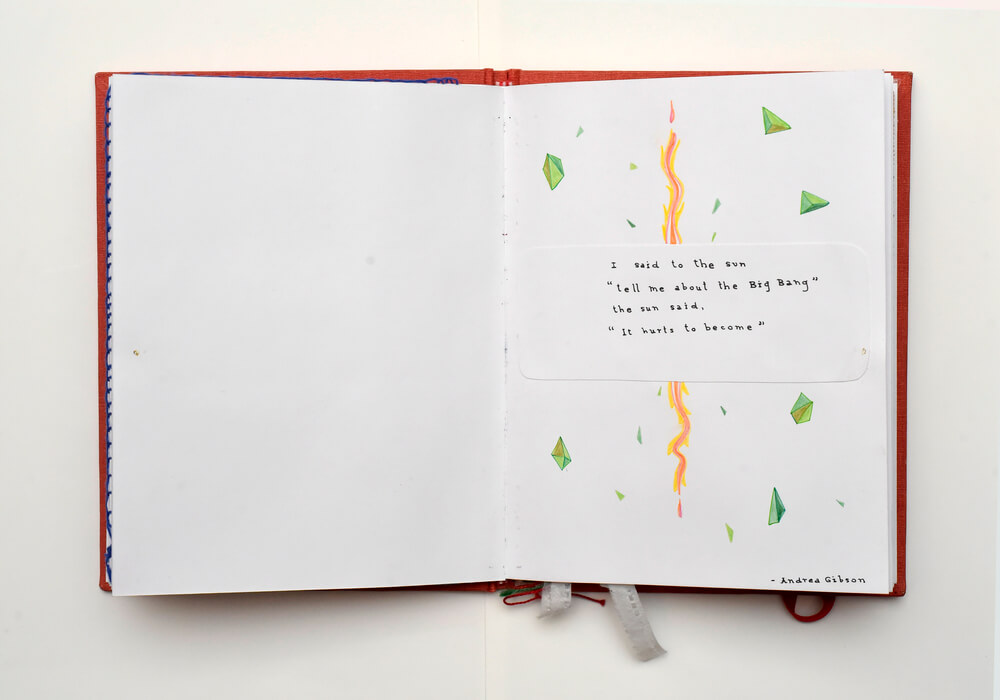 I said to the sun
"tell me about the Big Bang"
the sun said,
"It hurts to become"
- Andrea Gibson